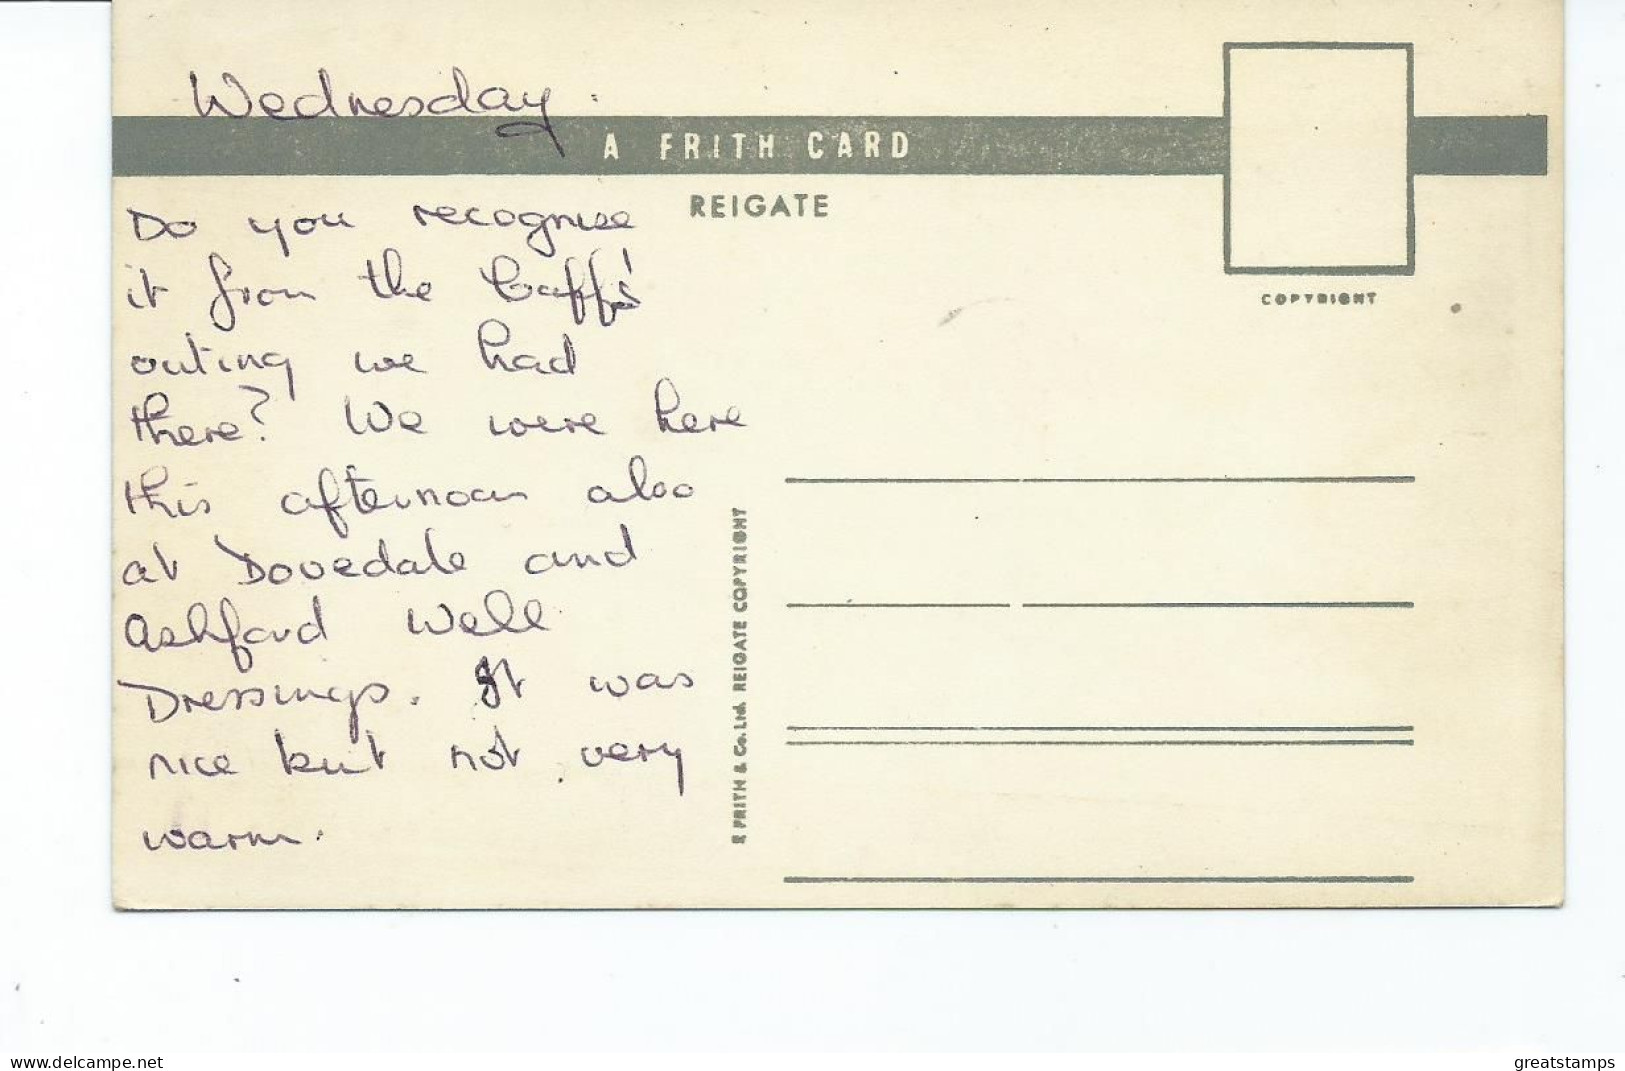 Wednesday.
A FRITH CARD
REIGATE
COPYRIGHT
Do you recognise
it from the Caffs'
outing we had
there? We were here
this afternoon also
at Dovedale and
Ashford Well
Dressings. It was
nice but not very
warm.
F. FRITH & Co. Ltd. REIGATE COPYRIGHT
www.delcampe.net
greatstamps